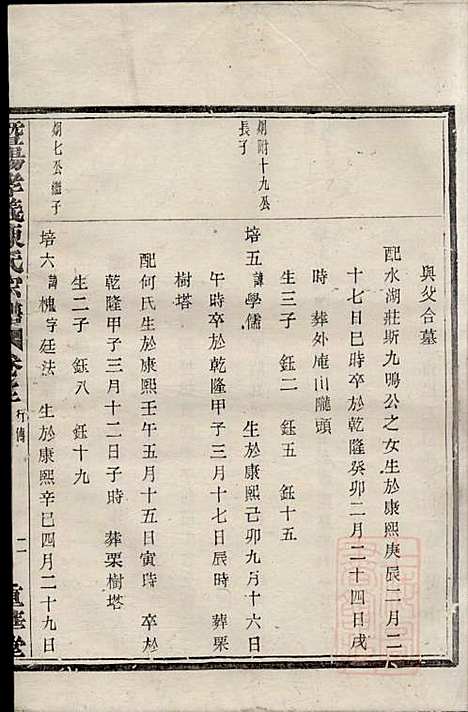 與父合墓
配水湖莊斯九鳴公之女生於康熙庚辰二月二
十七日巳時卒於乾隆癸卯二月二十四日戌
時 葬外庵山隴頭
生三子 鈺二 鈺五 鈺十五
烱附十九公長子
培五諱學儒 生於康熙己卯九月十六日
午時卒於乾隆甲子三月十七日辰時 葬栗
樹塔
配何氏生於康熙壬午五月十五日寅時 卒於
乾隆甲子三月十二日子時 葬栗樹塔
生二子 鈺八 鈺十九
烱七公繼子
培六諱槐字廷法 生於康熙辛巳四月二十九日
暨陽孝義陳氏宗譜 卷之 行傳 二 重華堂